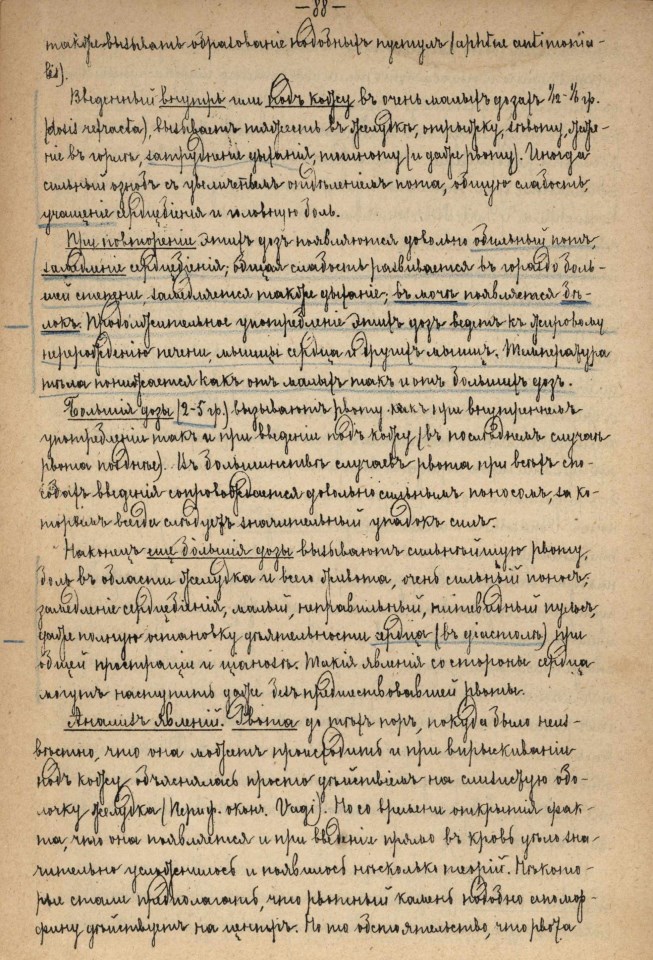 — 88 —
также вызывать образованіе подобныхъ пустулъ (aphtae antimonia-
lis).
Введенный внутрь или подъ кожу въ очень малыхъ дозахъ 1/12 - 1/6 гр.
(dosis refracta), вызываетъ тяжесть въ желудкѣ, отрыжку, зѣвоту, жже-
ніе въ горлѣ, затрудненіе дыханія, тошноту (и даже рвоту). Иногда
сильный ознобъ съ увеличеннымъ отдѣленіемъ пота, общую слабость,
учащеніе сердцебіенія и головную боль.
При повтореніи этихъ дозъ появляются довольно обильный потъ,
замедленіе сердцебіенія; общая слабость развивается въ гораздо боль-
шей степени, замедляется также дыханіе; въ мочѣ появляется бѣ-
локъ. Продолжительное употребленіе этихъ дозъ ведетъ къ жировому
перерожденію печени, мышцы сердца и другихъ мышцъ. Температура
тѣла понижается какъ отъ малыхъ такъ и отъ большихъ дозъ.
Большія дозы (2-5 гр.) вызываютъ рвоту какъ при внутреннемъ
употребленіи такъ и при введеніи подъ кожу (въ послѣднемъ случаѣ
рвота позднѣе). Въ большинствѣ случаевъ рвота при всѣхъ спо-
собахъ введенія сопровождается довольно сильнымъ поносомъ, за ко-
торымъ всегда слѣдуетъ значительный упадокъ силъ.
Наконецъ еще большія дозы вызываютъ сильнѣйшую рвоту,
боль въ области желудка и всего живота, очень сильный поносъ,
замедленіе сердцебіенія, малый, неправильный, нитевидный пульсъ,
даже полную остановку дѣятельности сердца (въ діастолѣ) при
общей простраціи и ціанозѣ. Такія явленія со стороны сердца
могутъ наступить даже безъ предшествовавшей рвоты.
Анализъ явленій. Рвота до тѣхъ поръ, покуда было неиз-
вѣстно, что она можетъ происходить и при впрыскиваніи
подъ кожу, объяснялась просто дѣйствіемъ на слизистую обо-
лочку желудка (периф. оконч. Vagi). Но со времени открытія фак-
та, что она появляется и при введеніи прямо въ кровь дѣло зна-
чительно усложнилось и появилось нѣсколько теорій. Нѣкото-
рые стали предполагать, что рвотный камень подобно апомор-
фину дѣйствуетъ на центръ. Но то обстоятельство, что рвота